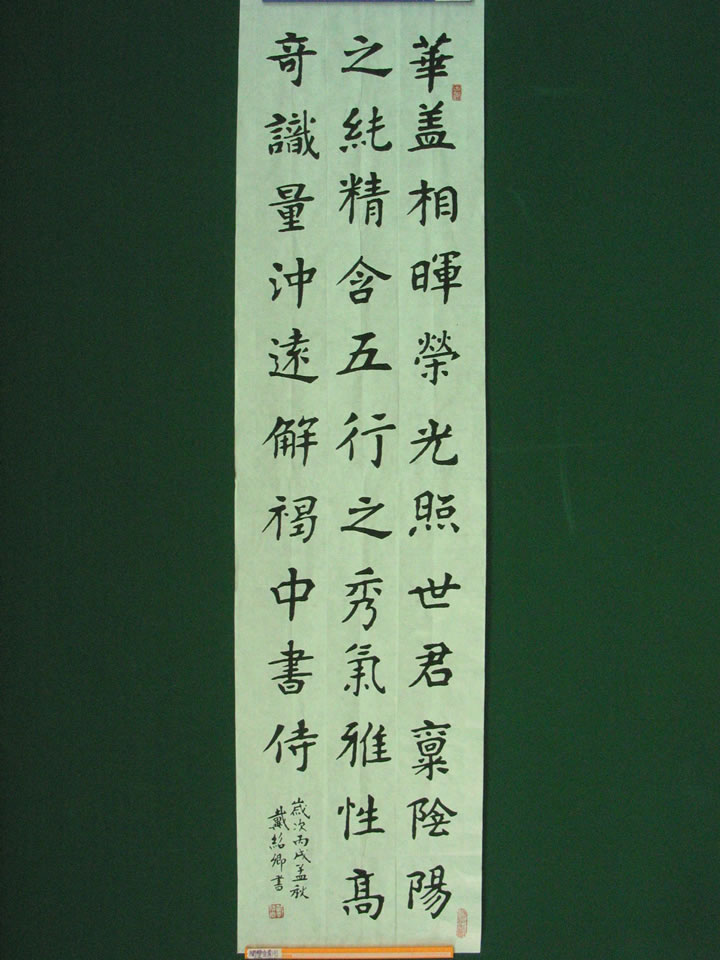 華盖相暉榮光照世君稟陰陽
之純精含五行之秀氣雅性高
奇識量沖遠解褐中書侍
歲次丙戌孟秋
戴紹卿書